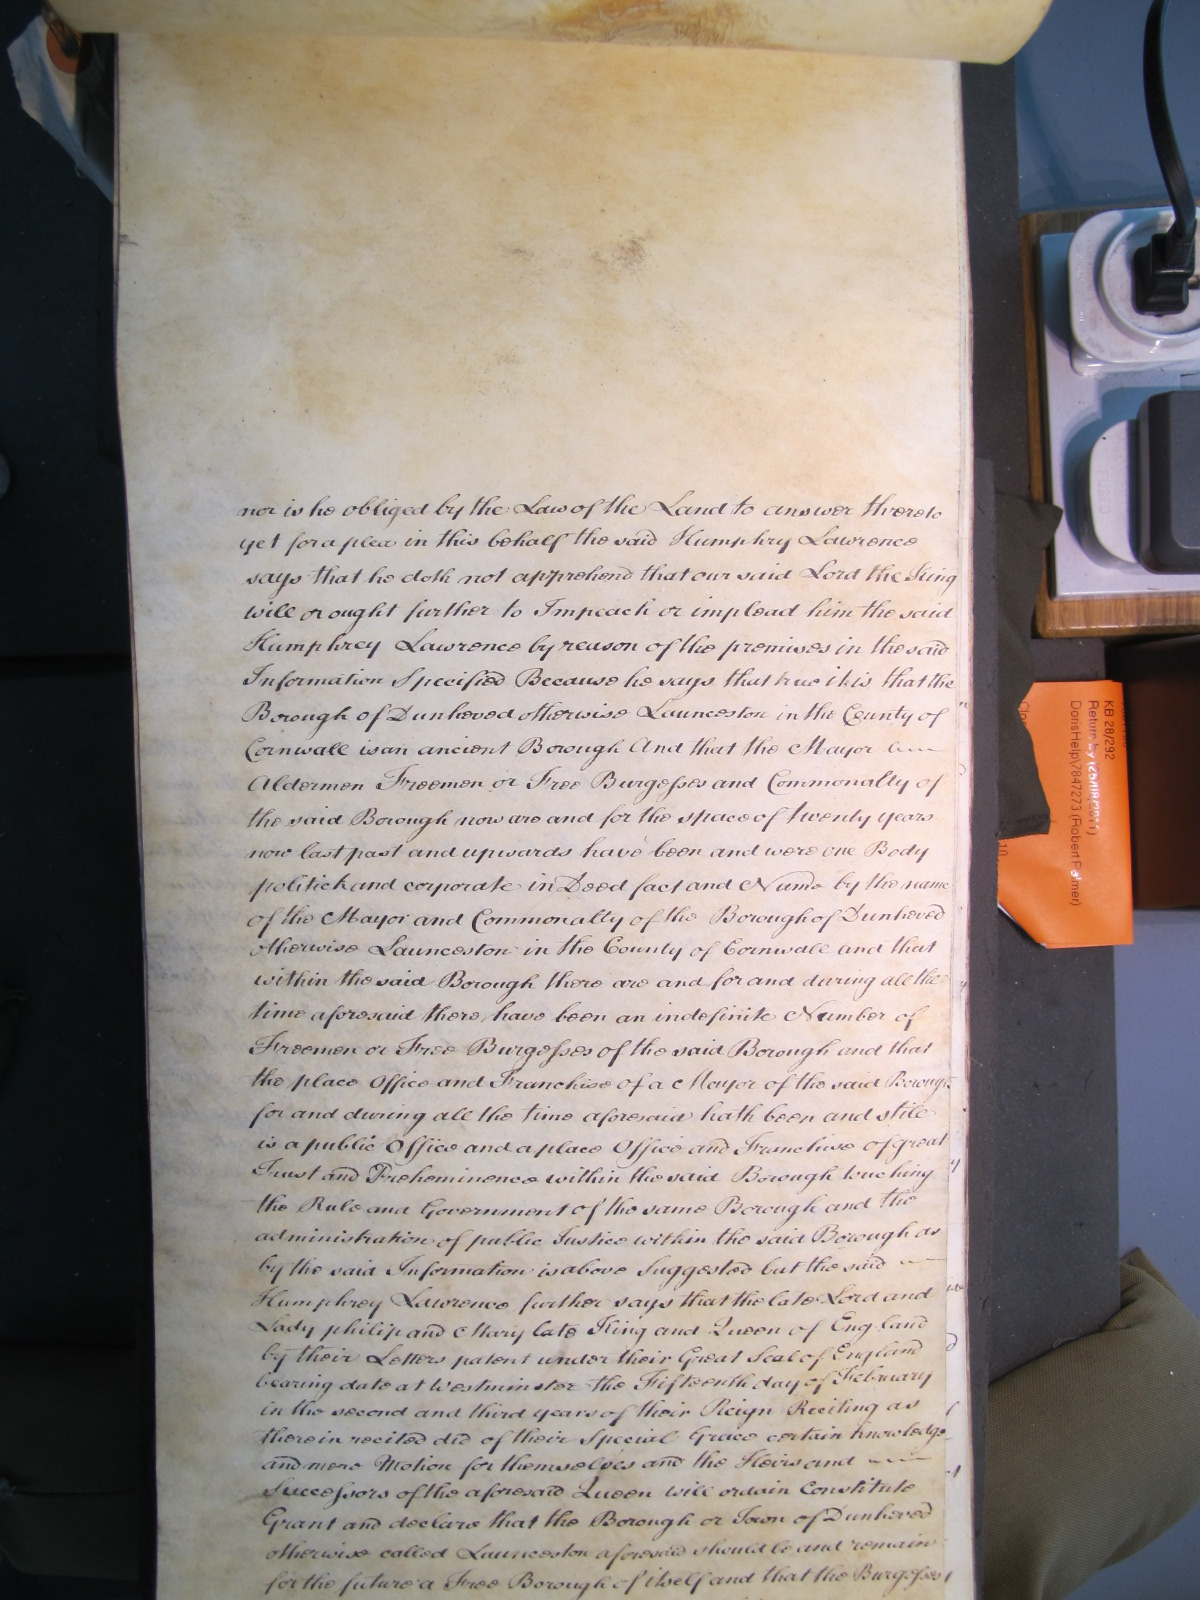 nor is he obliged by the Law of the Land to answer thereto
yet for a plea in this behalf the said Humphry Lawrence
says that he doth not apprehend that our said Lord the King
will or ought further to Impeach or implead him the said
Humphrey Lawrence by reason of the premises in the said
Information Specified Because he says that true it is that the
Borough of Dunheved otherwise Launceston in the County of
Cornwall is an ancient Borough And that the Mayor
Aldermen Freemen or Free Burgesses and Commonalty of
the said Borough now are and for the space of twenty years
now last past and upwards have been and were one Body
politick and corporate in Deed fact and Name by the name
of the Mayor and Commonalty of the Borough of Dunheved
otherwise Launceston in the County of Cornwall and that
within the said Borough there are and for and during all the
time aforesaid there have been an indefinite Number of
Freemen or Free Burgesses of the said Borough and that
the place Office and Franchise of a Mayor of the said Borough
for and during all the time aforesaid hath been and still
is a public Office and a place Office and Franchise of great
Trust and Preheminence within the said Borough touching
the Rule and Government of the same Borough and the
administration of public Justice within the said Borough as
by the said Information is above Suggested but the said
Humphrey Lawrence further says that the late Lord and
Lady philip and Mary late King and Queen of England
by their Letters patent under their Great Seal of England
bearing date at Westminster the Fifteenth day of February
in the second and third years of their Reign Reciting as
therein recited did of their Special Grace certain knowledge
and mere Motion for themselves and the Heirs and
Successors of the aforesaid Queen will ordain Constitute
Grant and declare that the Borough or Town of Dunheved
otherwise called Launceston aforesaid should be and remain
for the future a Free Borough of itself and that the Burgesses
KB 28/292
Return by (25/08/2011)
DorisHelp\7847273 (Robert Palmer)